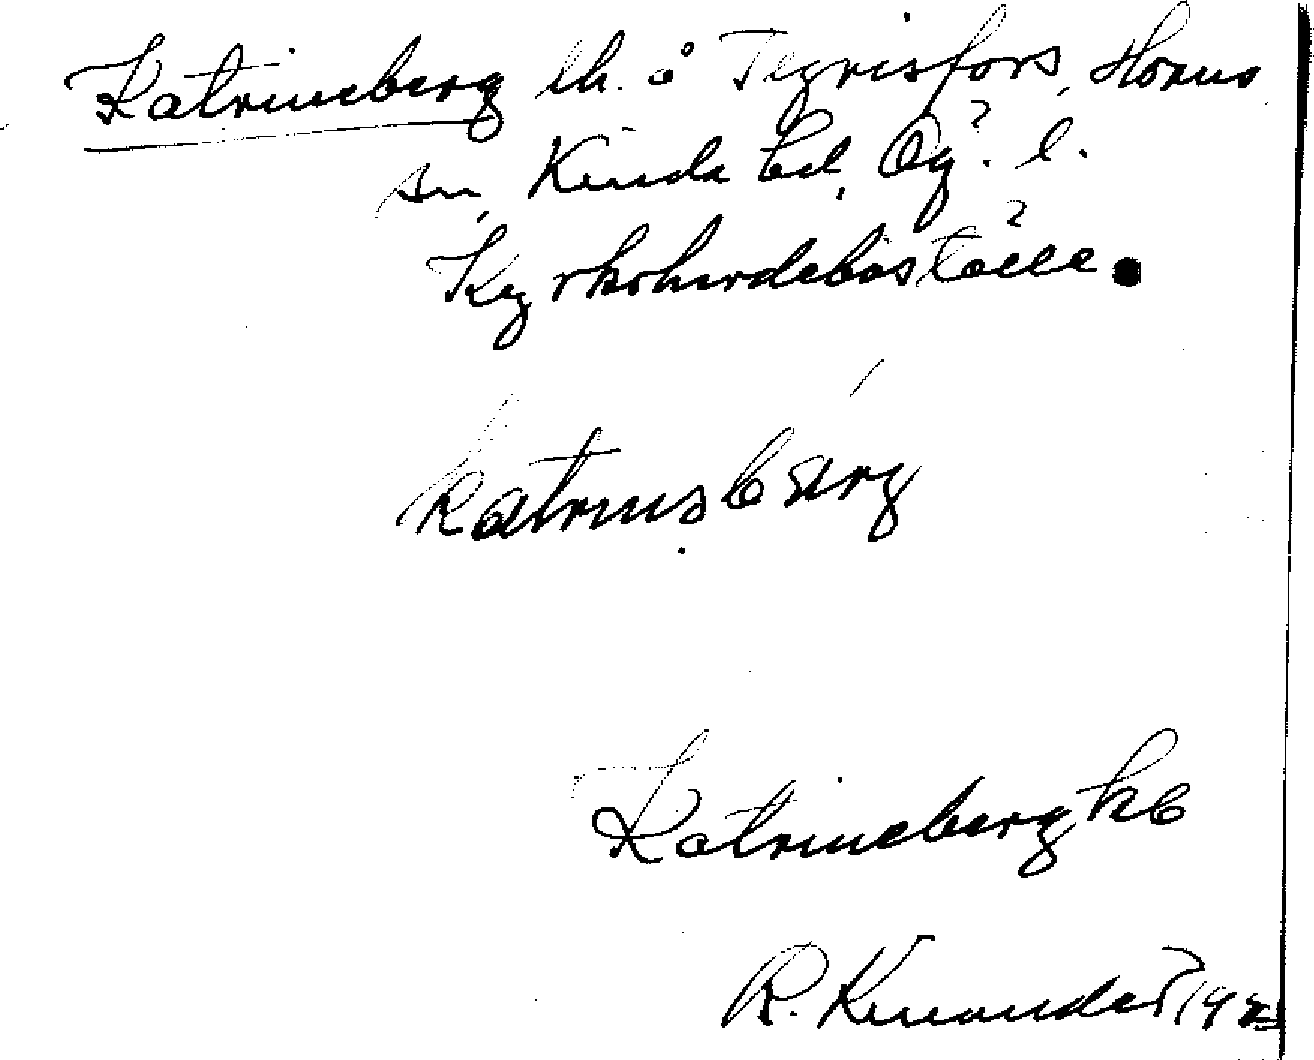 Katrineberg lh. å Tegrisfors, Horns
sn, Kinda hd, Ög. l.
Kyrkoherdeboställe.
Katrinsbärg
Katrineberg kb
R. Kinander